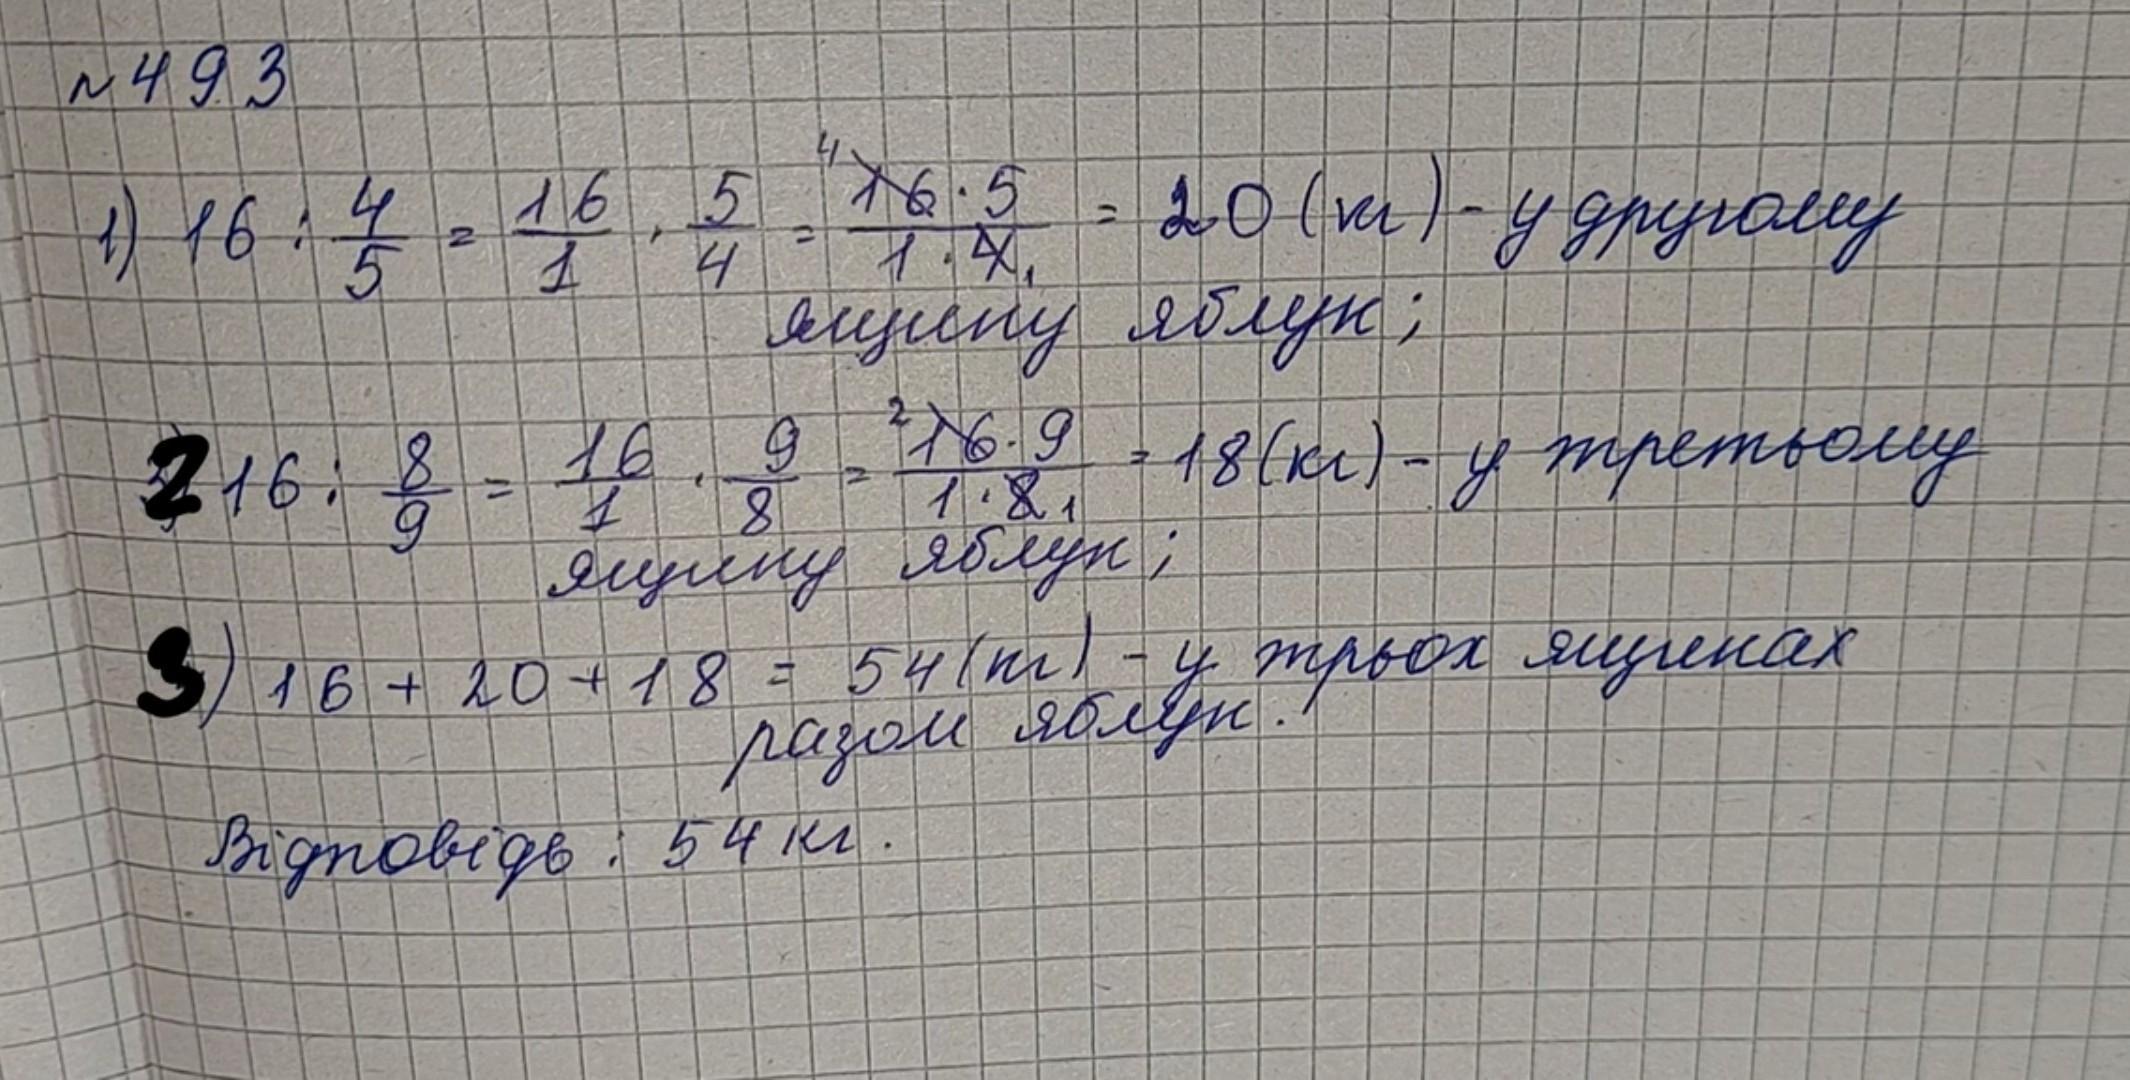 № 493
1) 16 : 4/5 = 16/1 · 5/4 = 4 16·5 / 1·4 1 = 20 (кг) - у другому
ящику яблук;
2 16 : 8/9 = 16/1 · 9/8 = 2 16·9 / 1·8 1 = 18 (кг) - у третьому
ящику яблук;
3) 16 + 20 + 18 = 54 (кг) - у трьох ящиках
разом яблук.
Відповідь : 54 кг.